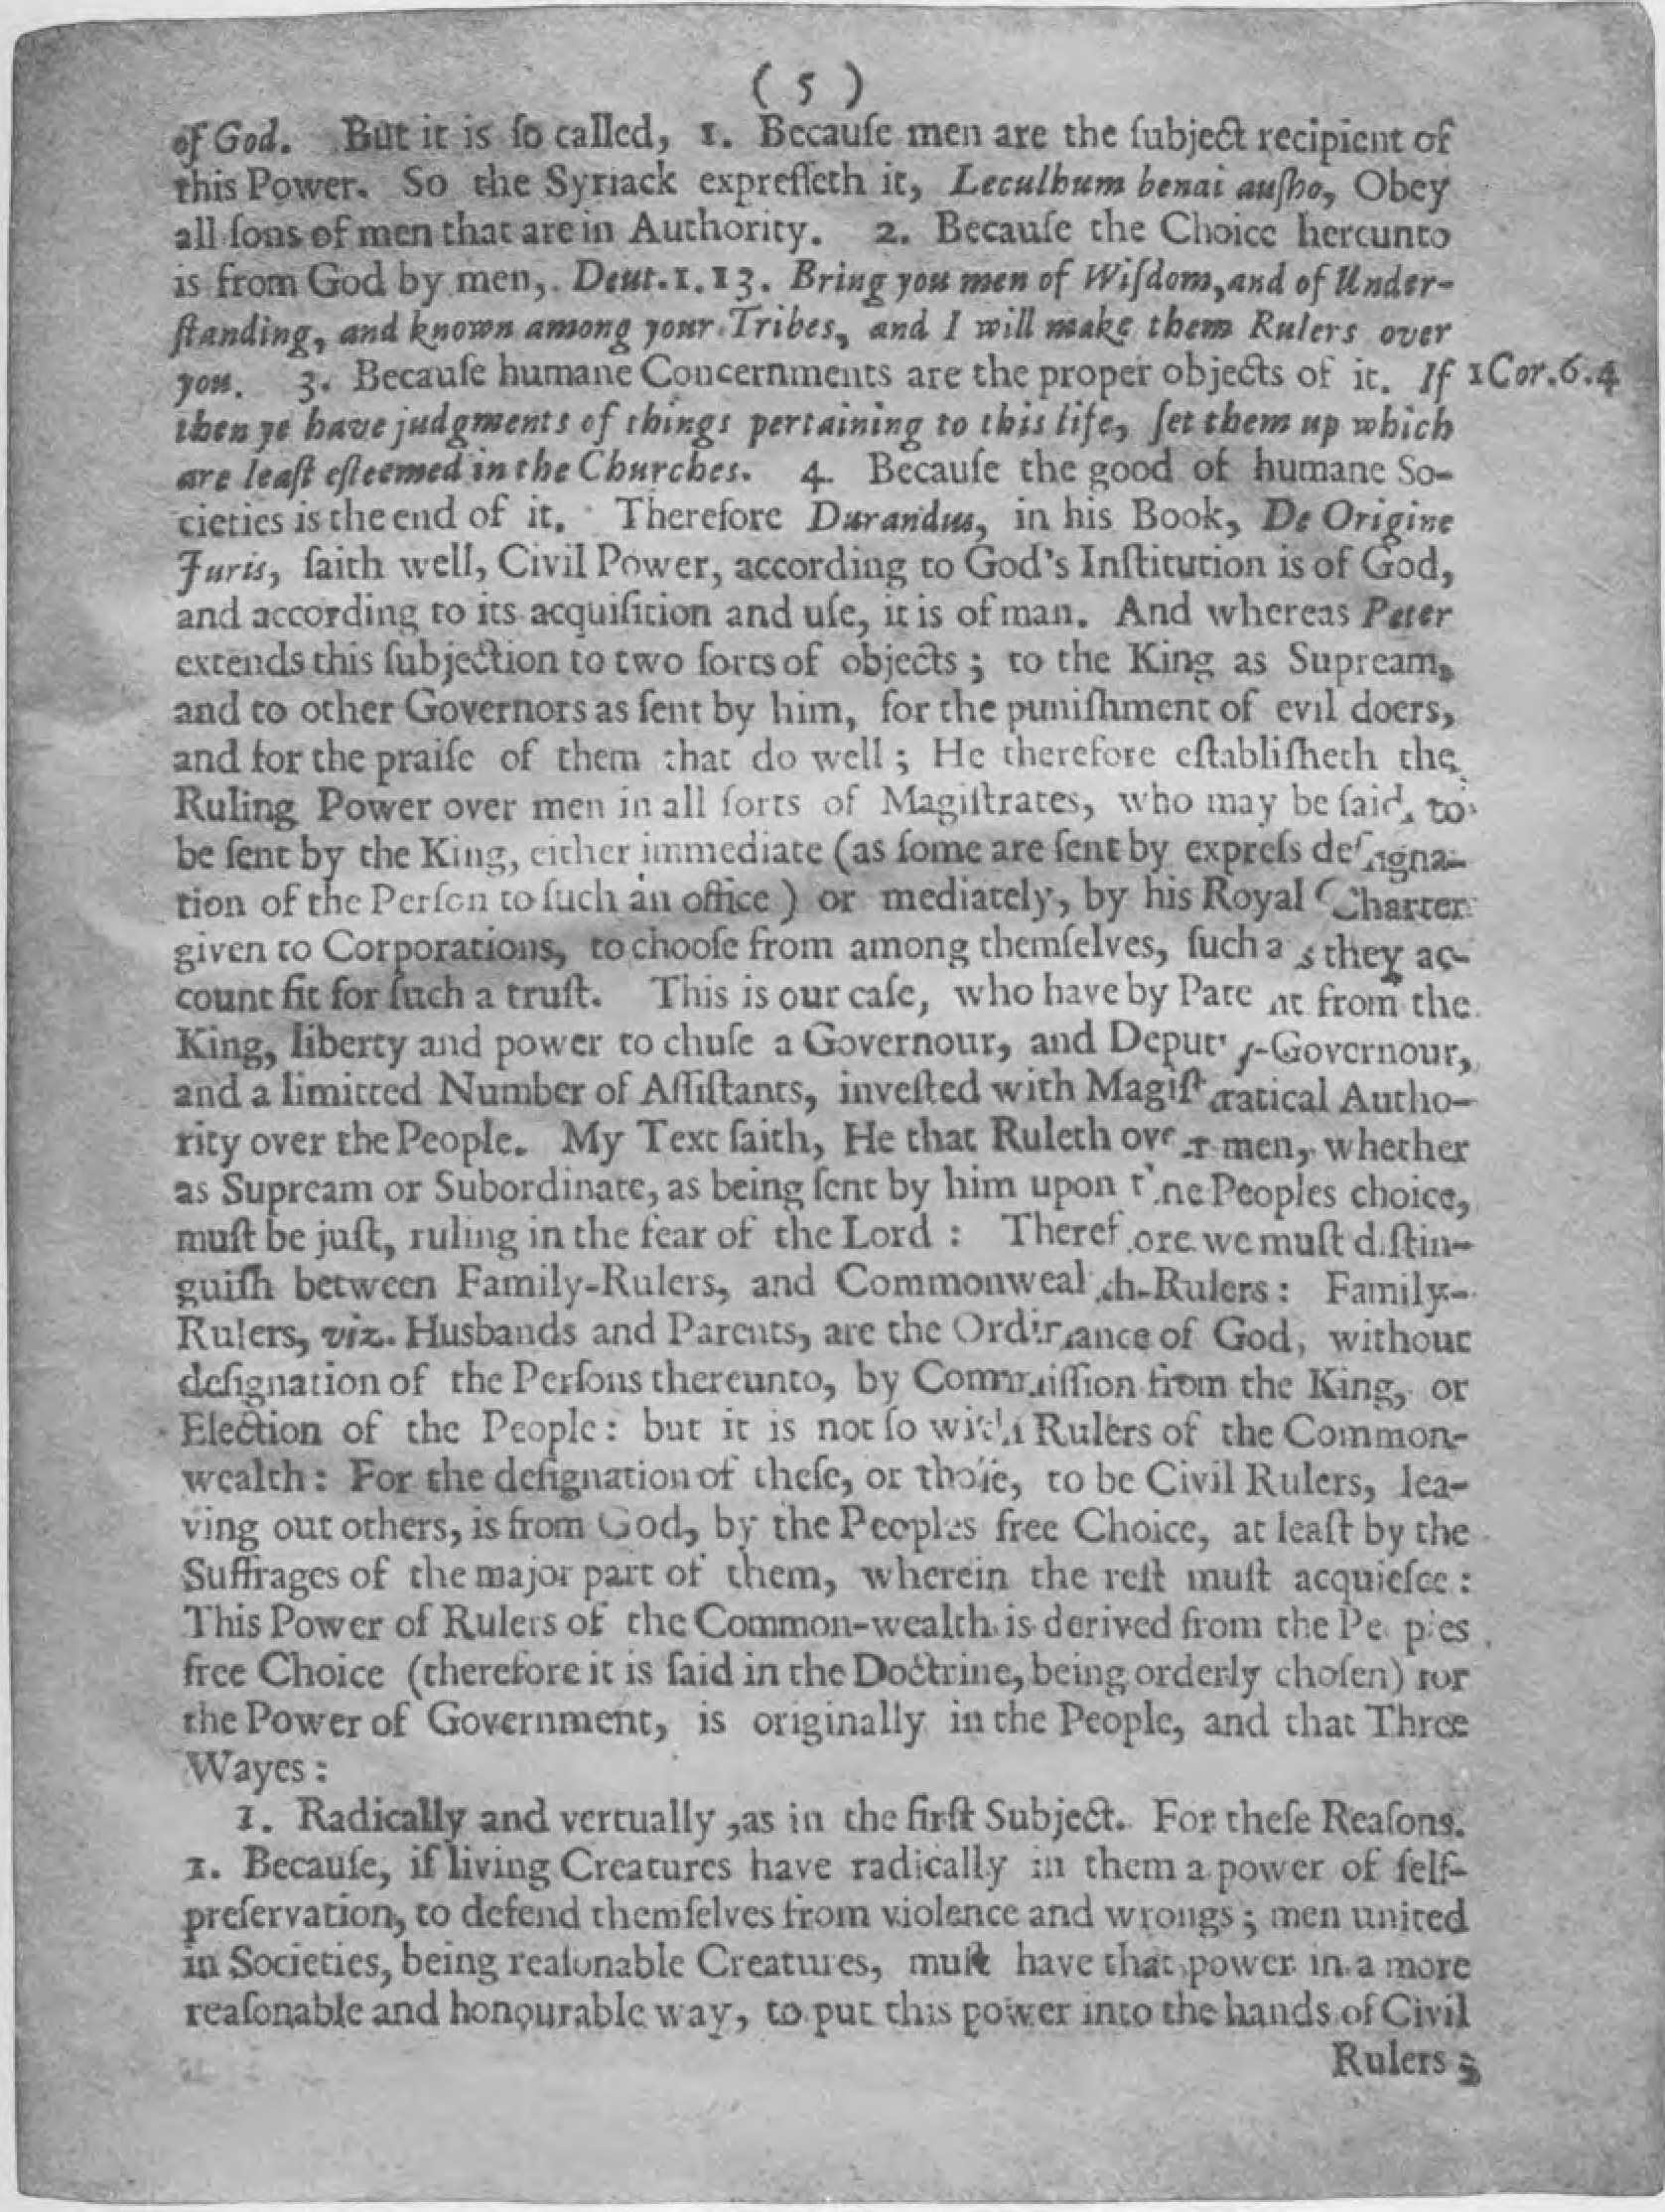 ( 5 )
of God. But it is ſo called, 1. Becauſe men are the ſubject recipient of
this Power. So the Syriack expreſſeth it, Leculhum benai auſho, Obey
all ſons of men that are in Authority. 2. Becauſe the Choice hereunto
is from God by men, Deut. 1. 13. Bring you men of Wiſdom, and of Under-
ſtanding, and known among your Tribes, and I will make them Rulers over
you. 3. Becauſe humane Concernments are the proper objects of it. If 1 Cor. 6. 4
then ye have judgments of things pertaining to this life, ſet them up which
are leaſt eſteemed in the Churches. 4. Becauſe the good of humane So-
cieties is the end of it. Therefore Durandus, in his Book, De Origine
Juris, ſaith well, Civil Power, according to God's Inſtitution is of God,
and according to its acquiſition and uſe, it is of man. And whereas Peter
extends this ſubjection to two ſorts of objects ; to the King as Supream,
and to other Governors as ſent by him, for the puniſhment of evil doers,
and for the praiſe of them that do well ; He therefore eſtabliſheth the
Ruling Power over men in all ſorts of Magiſtrates, who may be ſaid, to
be ſent by the King, either immediate (as ſome are ſent by expreſs deſigna-
tion of the Perſon to ſuch an office ) or mediately, by his Royal Charter
given to Corporations, to chooſe from among themſelves, ſuch as they ac-
count fit for ſuch a truſt. This is our caſe, who have by Patent from the
King, liberty and power to chuſe a Governour, and Deputy-Governour,
and a limitted Number of Aſſiſtants, inveſted with Magiſtratical Autho-
rity over the People. My Text ſaith, He that Ruleth over men, whether
as Supream or Subordinate, as being ſent by him upon the Peoples choice,
muſt be juſt, ruling in the fear of the Lord : Therefore we muſt diſtin-
guiſh between Family-Rulers, and Commonwealth-Rulers : Family-
Rulers, viz. Husbands and Parents, are the Ordinance of God, without
deſignation of the Perſons thereunto, by Commiſſion from the King, or
Election of the People : but it is not ſo with Rulers of the Common-
wealth : For the deſignation of theſe, or thoſe, to be Civil Rulers, lea-
ving out others, is from God, by the Peoples free Choice, at leaſt by the
Suffrages of the major part of them, wherein the reſt muſt acquieſce :
This Power of Rulers of the Common-wealth is derived from the Peoples
free Choice (therefore it is ſaid in the Doctrine, being orderly choſen) for
the Power of Government, is originally in the People, and that Three
Wayes :
1. Radically and vertually ,as in the firſt Subject. For theſe Reaſons.
1. Becauſe, if living Creatures have radically in them a power of ſelf-
preſervation, to defend themſelves from violence and wrongs ; men united
in Societies, being reaſonable Creatures, muſt have that power in a more
reaſonable and honourable way, to put this power into the hands of Civil
Rulers ;